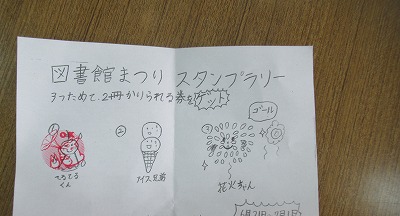 図書館まつり スタンプラリー
3つためて、2冊かりられる券をゲット
ゴール
②
③
てるてる
くん
アイス兄弟
花火ちゃん
6月21日〜7月1日